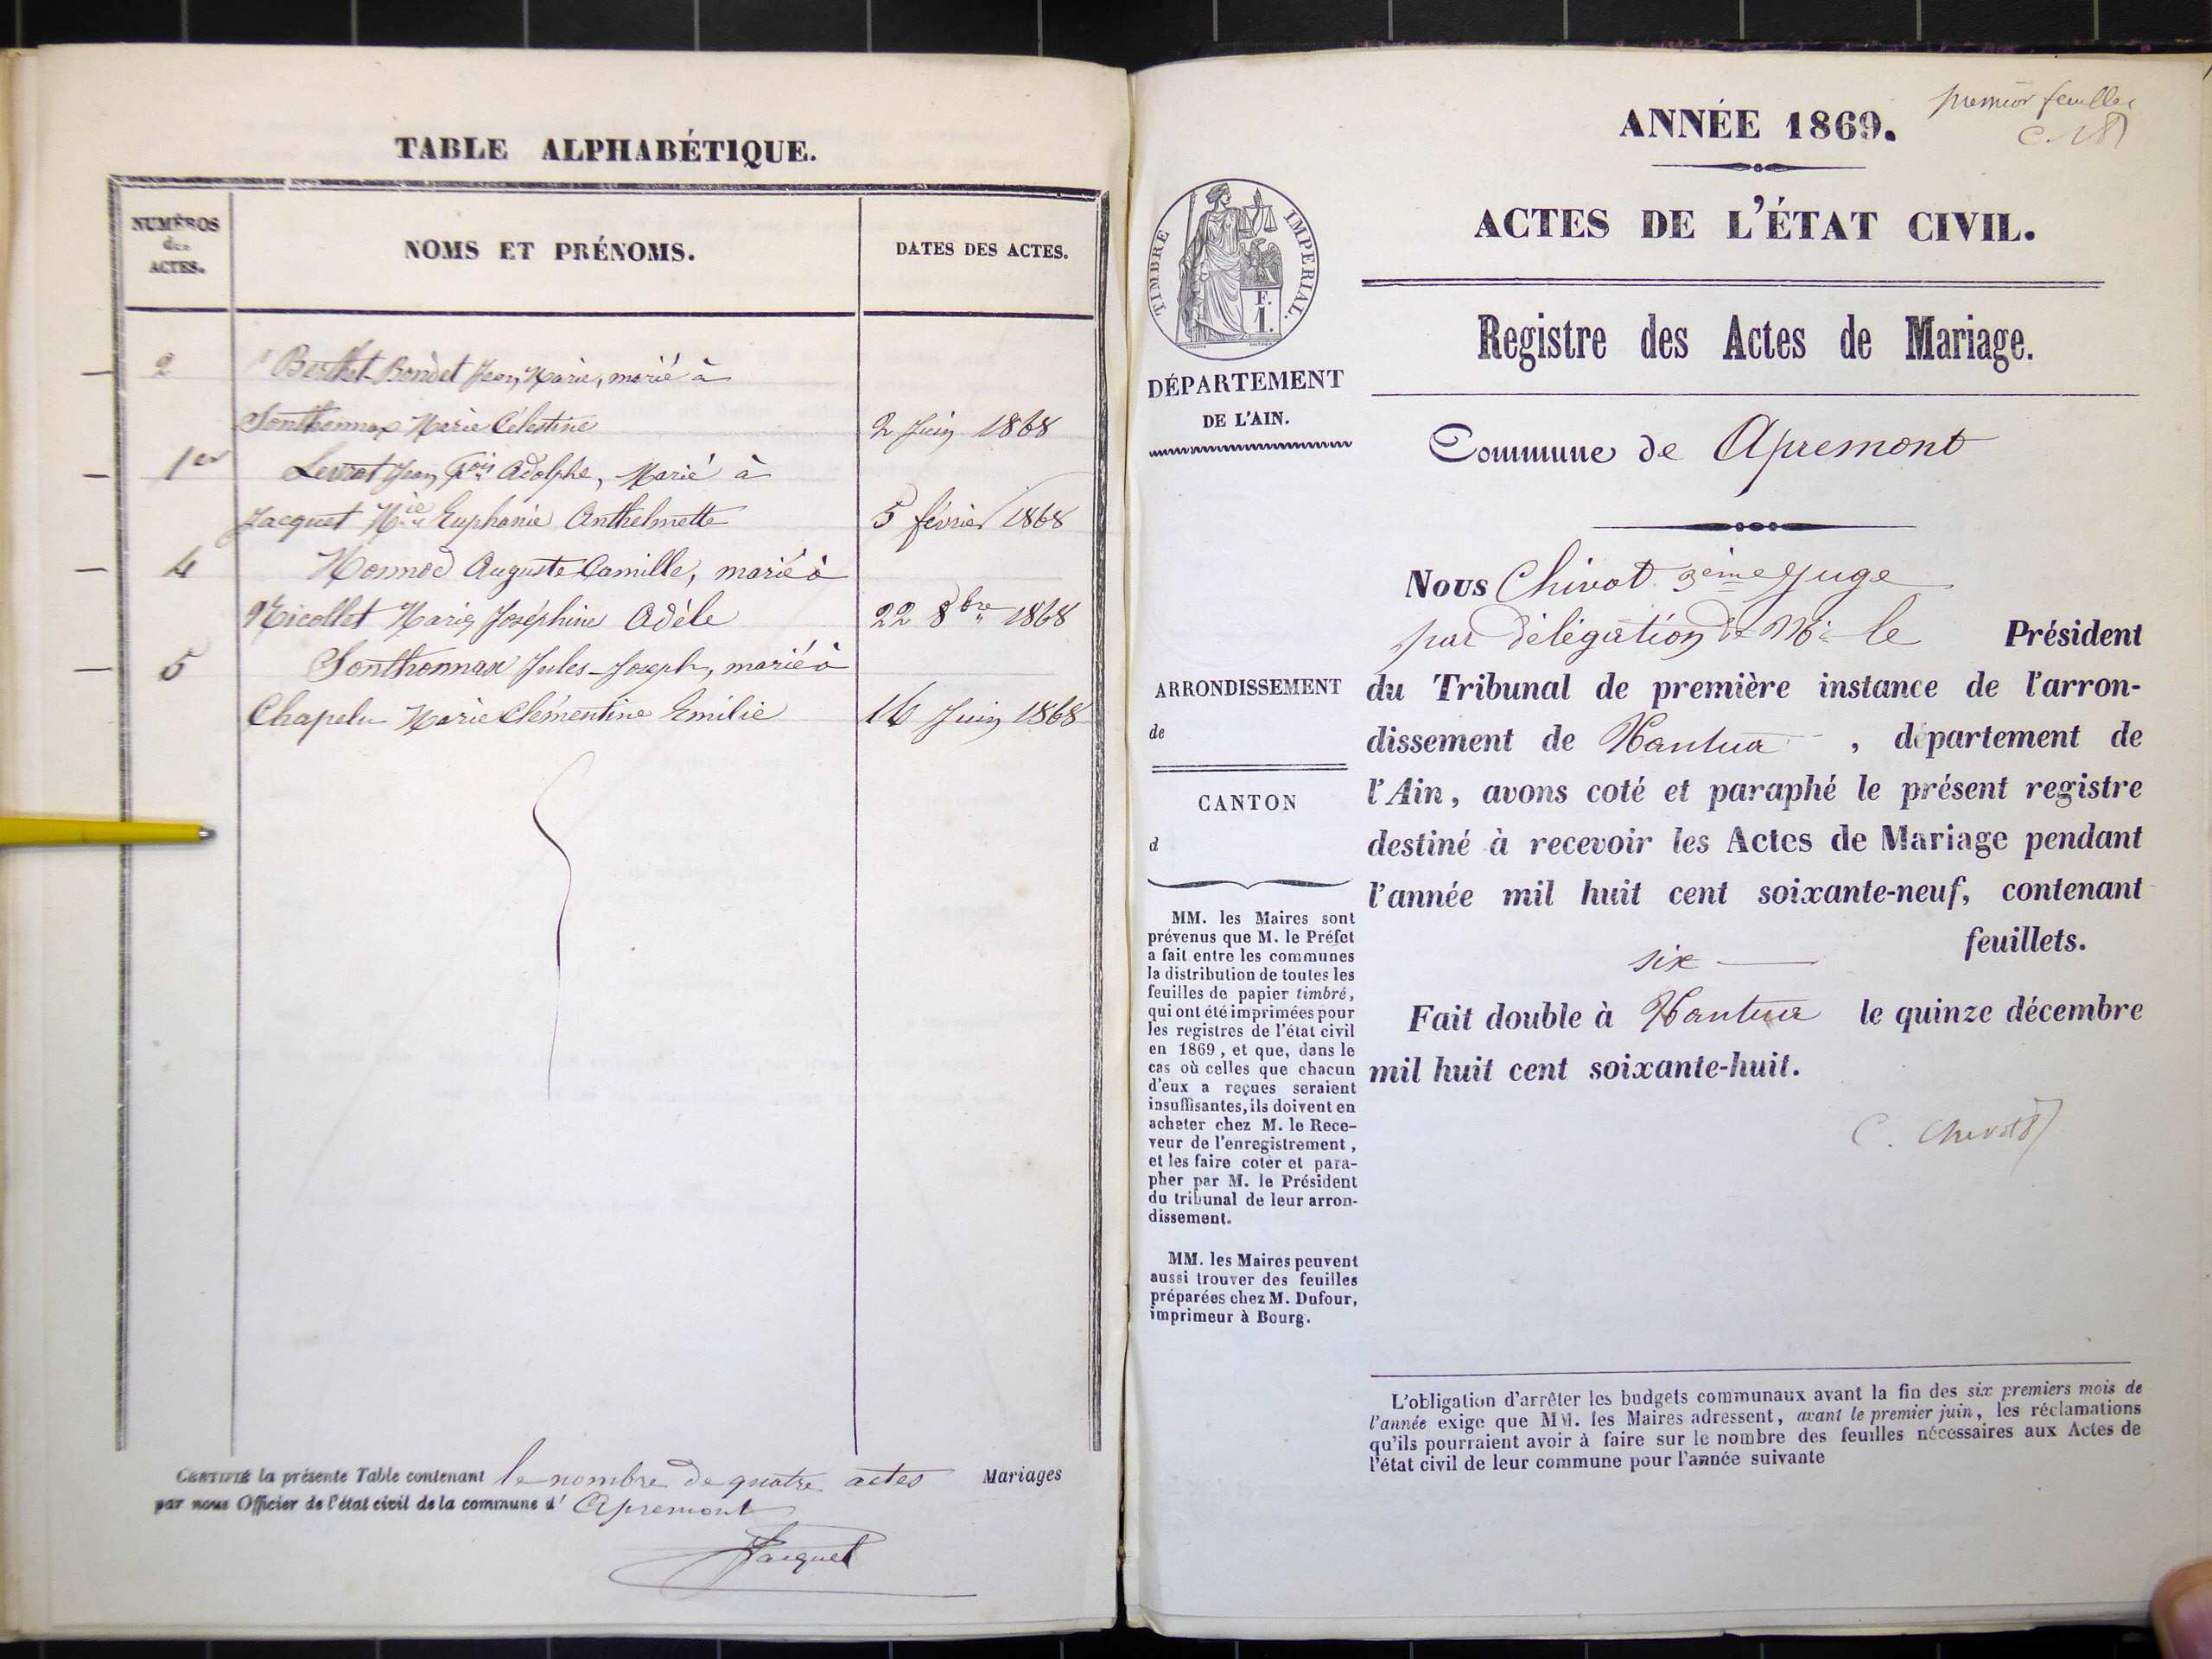 TABLE ALPHABÉTIQUE.
NUMÉROS
des
ACTES.
NOMS ET PRÉNOMS.
DATES DES ACTES.
2 Berthet-Bondet Jean Marie, marié à
Sonthonnax Marie Célestine 2 Juin 1868
1er Levrat Jean Fois Adolphe, Marié à
Jacquet Mie Euphanie Anthelmette 5 février 1868
4 Monnod Auguste Camille, marié à
Nicollet Marie Joséphine Adèle 22 8bre 1868
5 Sonthonnax Jules-Joseph, marié à
Chapelu Marie Clémentine Emilie 16 Juin 1868
CERTIFIÉ la présente Table contenant le nombre de quatre actes Mariages
par nous Officier de l'état civil de la commune d' Apremont
Jacquet
premier feuillet
ANNÉE 1869.
ACTES DE L'ÉTAT CIVIL.
Registre des Actes de Mariage.
Commune de Apremont
TIMBRE IMPERIAL.
F.
1.
DÉPARTEMENT
DE L'AIN.
ARRONDISSEMENT
de
CANTON
d
MM. les Maires sont
prévenus que M. le Préfet
a fait entre les communes
la distribution de toutes les
feuilles de papier timbré,
qui ont été imprimées pour
les registres de l'état civil
en 1869, et que, dans le
cas où celles que chacun
d'eux a reçues seraient
insuffisantes, ils doivent en
acheter chez M. le Rece-
veur de l'enregistrement,
et les faire coter et para-
pher par M. le Président
du tribunal de leur arron-
dissement.
MM. les Maires peuvent
aussi trouver des feuilles
préparées chez M. Dufour,
imprimeur à Bourg.
Nous Chivot 3ème Juge
par délégation de Mr le Président
du Tribunal de première instance de l'arron-
dissement de Nantua, département de
l'Ain, avons coté et paraphé le présent registre
destiné à recevoir les Actes de Mariage pendant
l'année mil huit cent soixante-neuf, contenant
six feuillets.
Fait double à Nantua le quinze décembre
mil huit cent soixante-huit.
C. Chivot
L'obligation d'arrêter les budgets communaux avant la fin des six premiers mois de
l'année exige que MM. les Maires adressent, avant le premier juin, les réclamations
qu'ils pourraient avoir à faire sur le nombre des feuilles nécessaires aux Actes de
l'état civil de leur commune pour l'année suivante